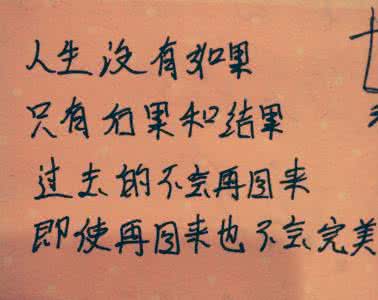 人生没有如果
只有后果和结果
过去的不会再回来
即使再回来也不会完美